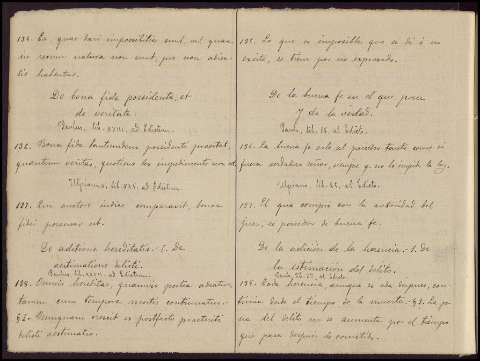 135. Ea, quae dari impossibilia sunt, vel quae
in rerum natura non sunt, pro non adiec-
tis habentur.
De bona fide possidente, et
de veritate.
Paulus, lib. XVIII. ad Edictum.
136. Bona fides tantundem possidenti praestat,
quantum veritas, quoties lex impedimento non est.
Ulpianus, lib. XXV. ad Edictum
137. Qui auctore iudice comparavit, bonae
fidei possessor est.
De aditione hereditatis.- 1. De
aestimatione delicti.
Paulus, lib. XXVII. ad Edictum
138. Omnis hereditas, quamvis postea adeatur,
tamen cum tempore mortis continuatur.-
§1. Numquam crescit ex postfacto praeteriti
delicti aestimatio.
135. Lo que es imposible que se dé ó no
existe, se tiene por no expresado.
De la buena fe en el que posee
y de la verdad.
Paulo, lib. 18. al Edicto.
136. La buena fe vale al poseedor tanto como si
fuera verdadero señor, siempre q. no lo impida la ley.
Ulpiano, lib. 25. al Edicto.
137. El que compró con la autoridad del
juez, es poseedor de buena fe.
De la adición de la herencia.- 1. De
la estimación del delito.
Paulo, lib. 27. al Edicto
138. Toda herencia, aunque se ada después, con-
tinúa desde el tiempo de la muerte.- §1. La pe-
na del delito no se aumenta por el tiempo
que pasa después de cometido.